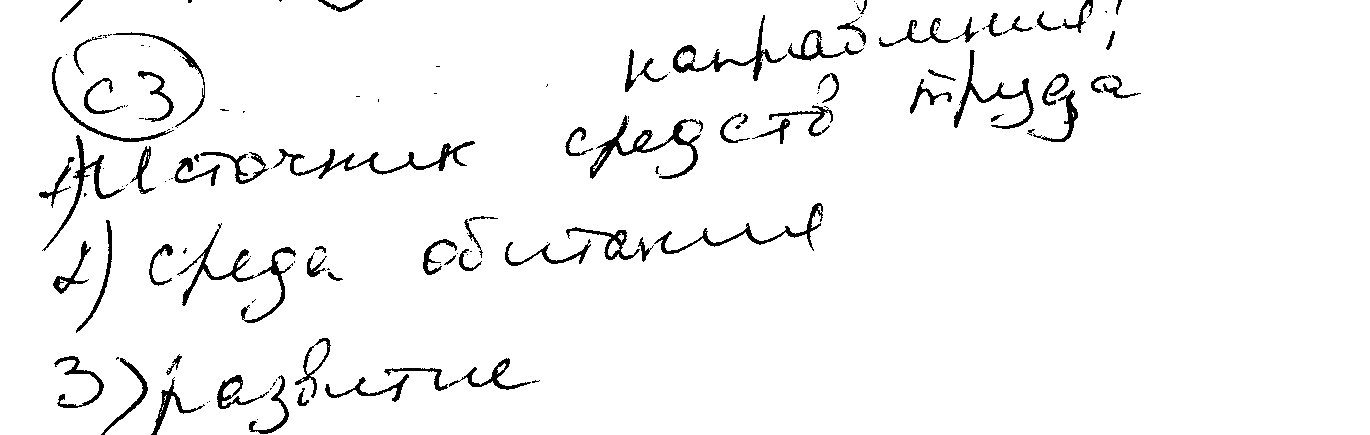 С3 направления:
1) Источник средств труда
2) среда обитания
3) развитие